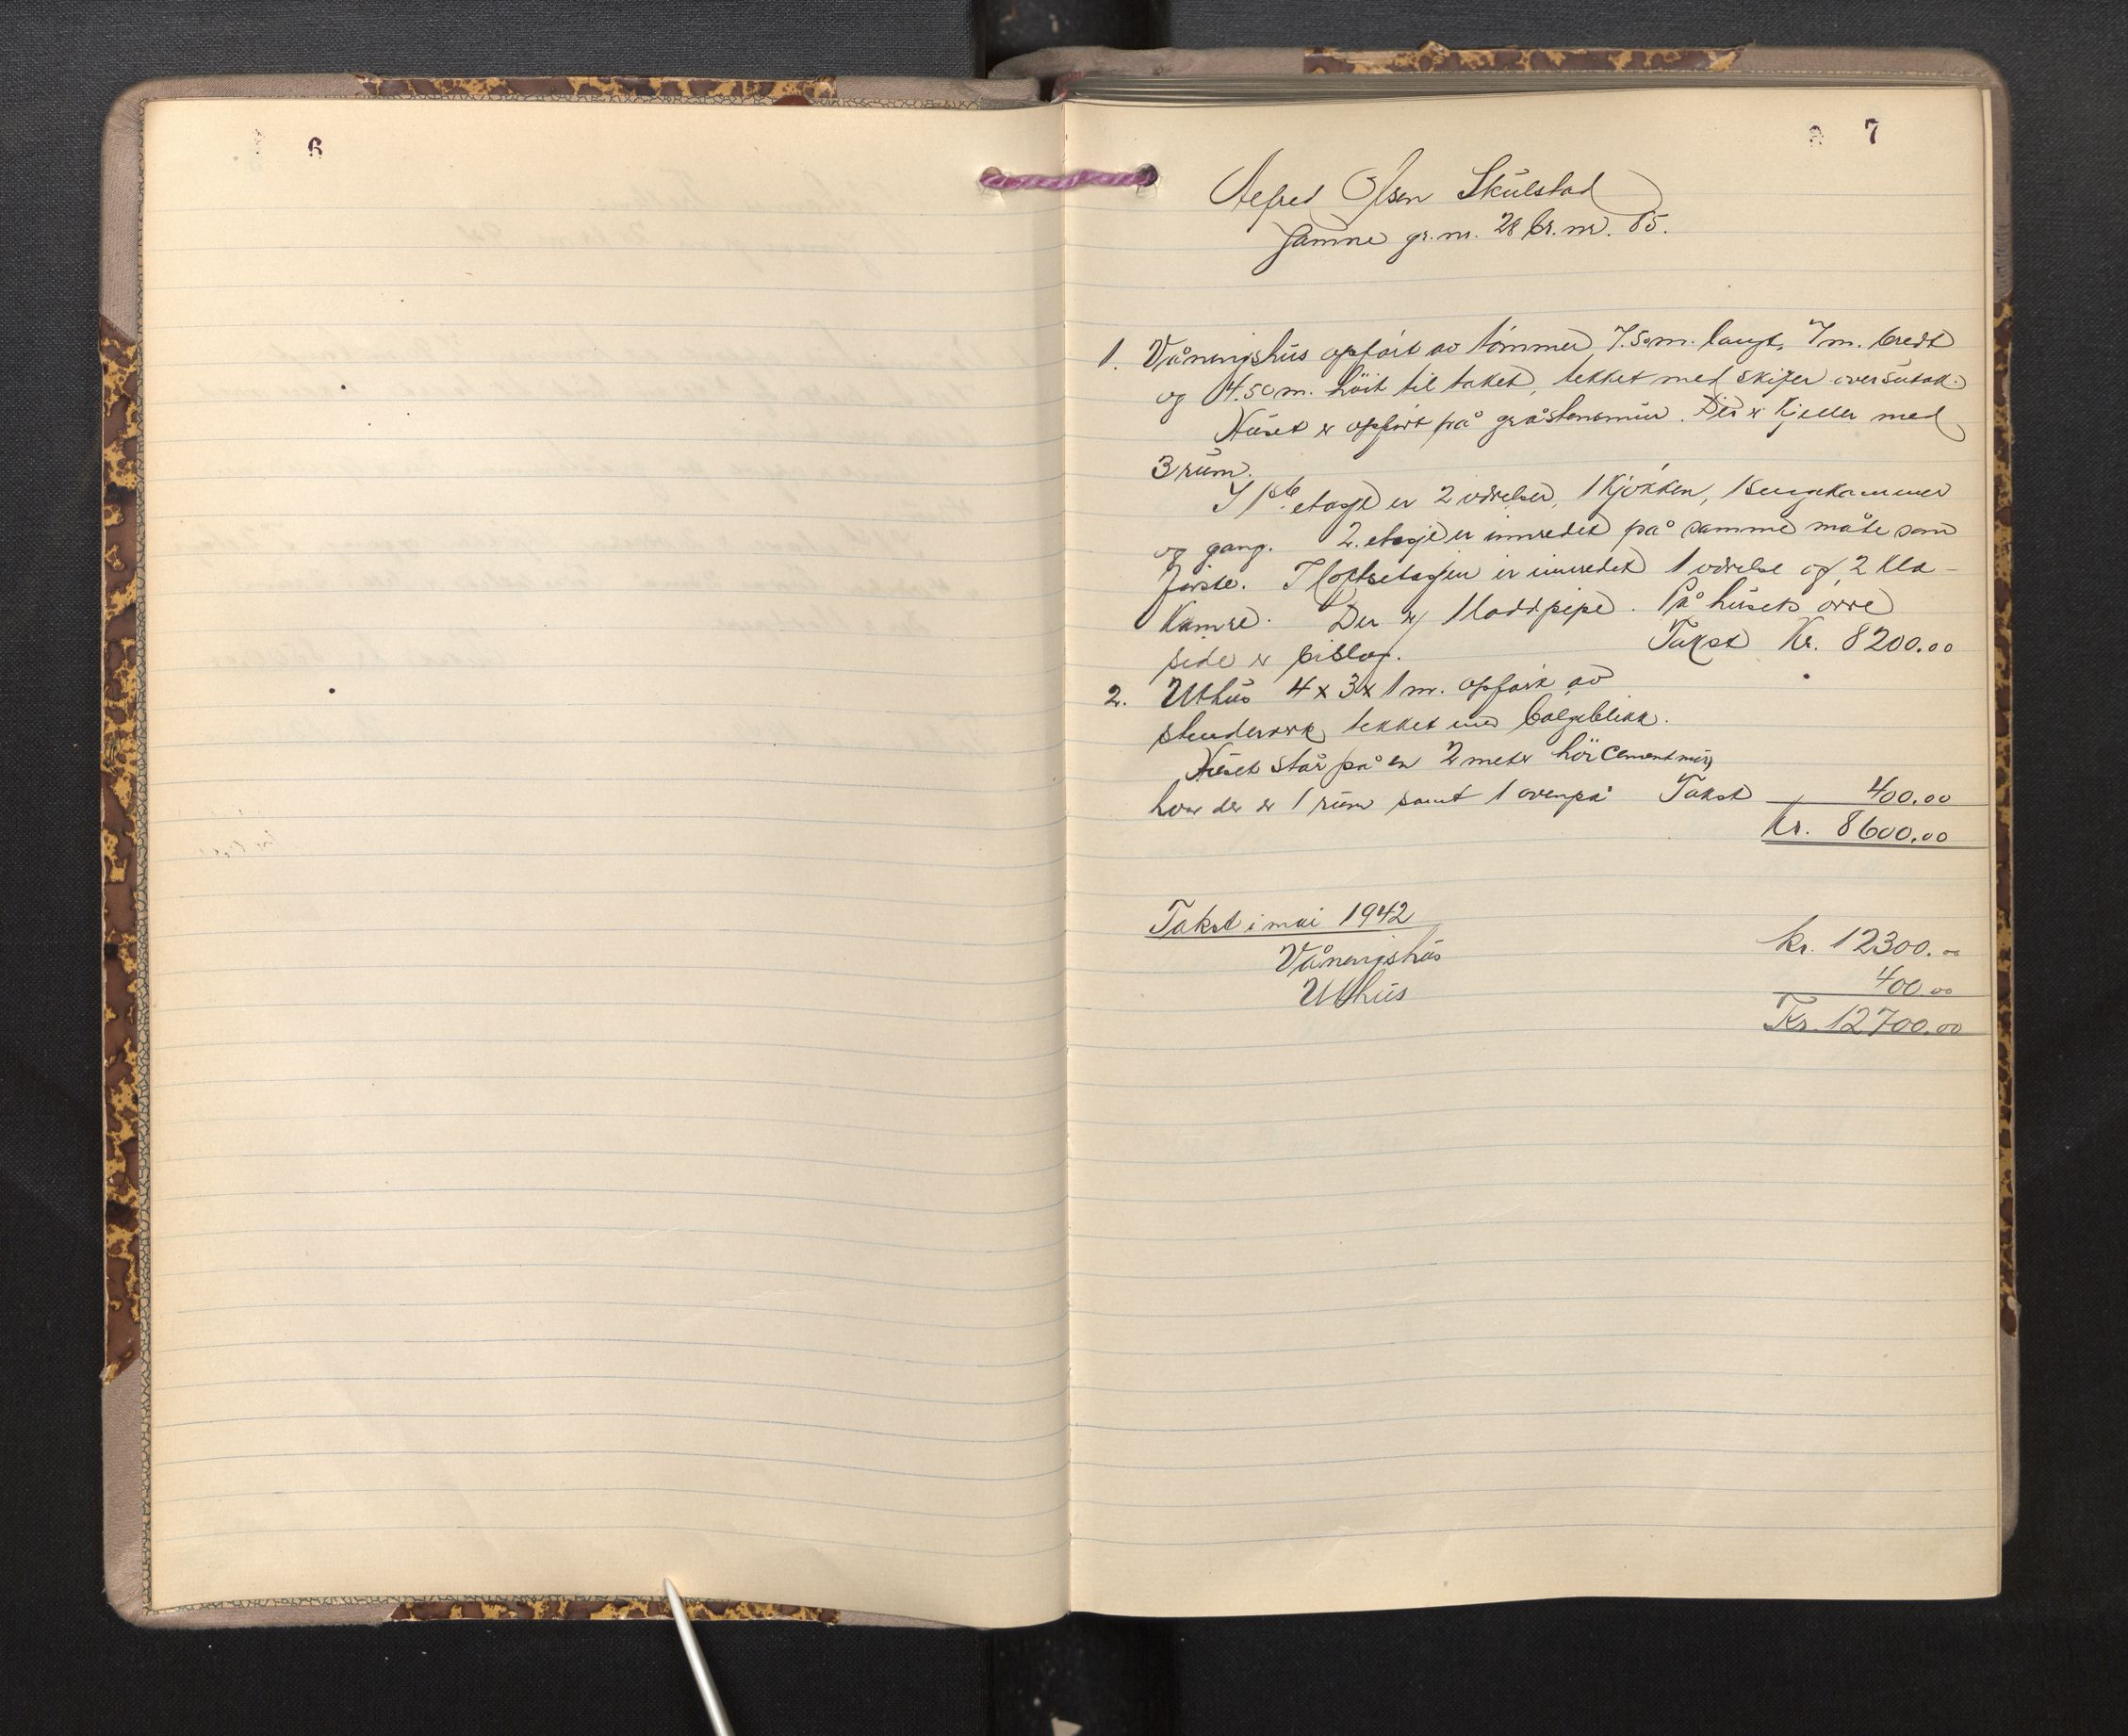 6
7
Alfred Olsen Skulstad
Jamne gr. nr. 28 br. nr. 85.
1. Våningshus opført av tømmer, 7.50 m. langt, 7 m. bredt
og 4.50 m. höit til taket, tekket med skifer over sutak.
Huset er opført på gråstensmur. Der er kjeller med
3 rum.
I 1ste etage er 2 værelser, 1 kjøkken, 1 sengekammer
og gang. 2. etage er innredet på samme måte som
første. I loftsetagen er innredet 1 værelse og 2 kla-
kamre. Der er 1 loddpipe. På husets øvre
side er bislag. Takst Kr. 8200.00
2. Uthus 4 x 3 x 1 m. opført av
stenderverk tekket med bølgeblikk.
Huset står på en 2 meter höi cementmur,
hvor der er 1 rum samt 1 ovenpå Takst 400.00
Kr. 8600.00
Takst i mai 1942
Våningshus kr. 12300.00
Uthus 400.00
Kr. 12700.00